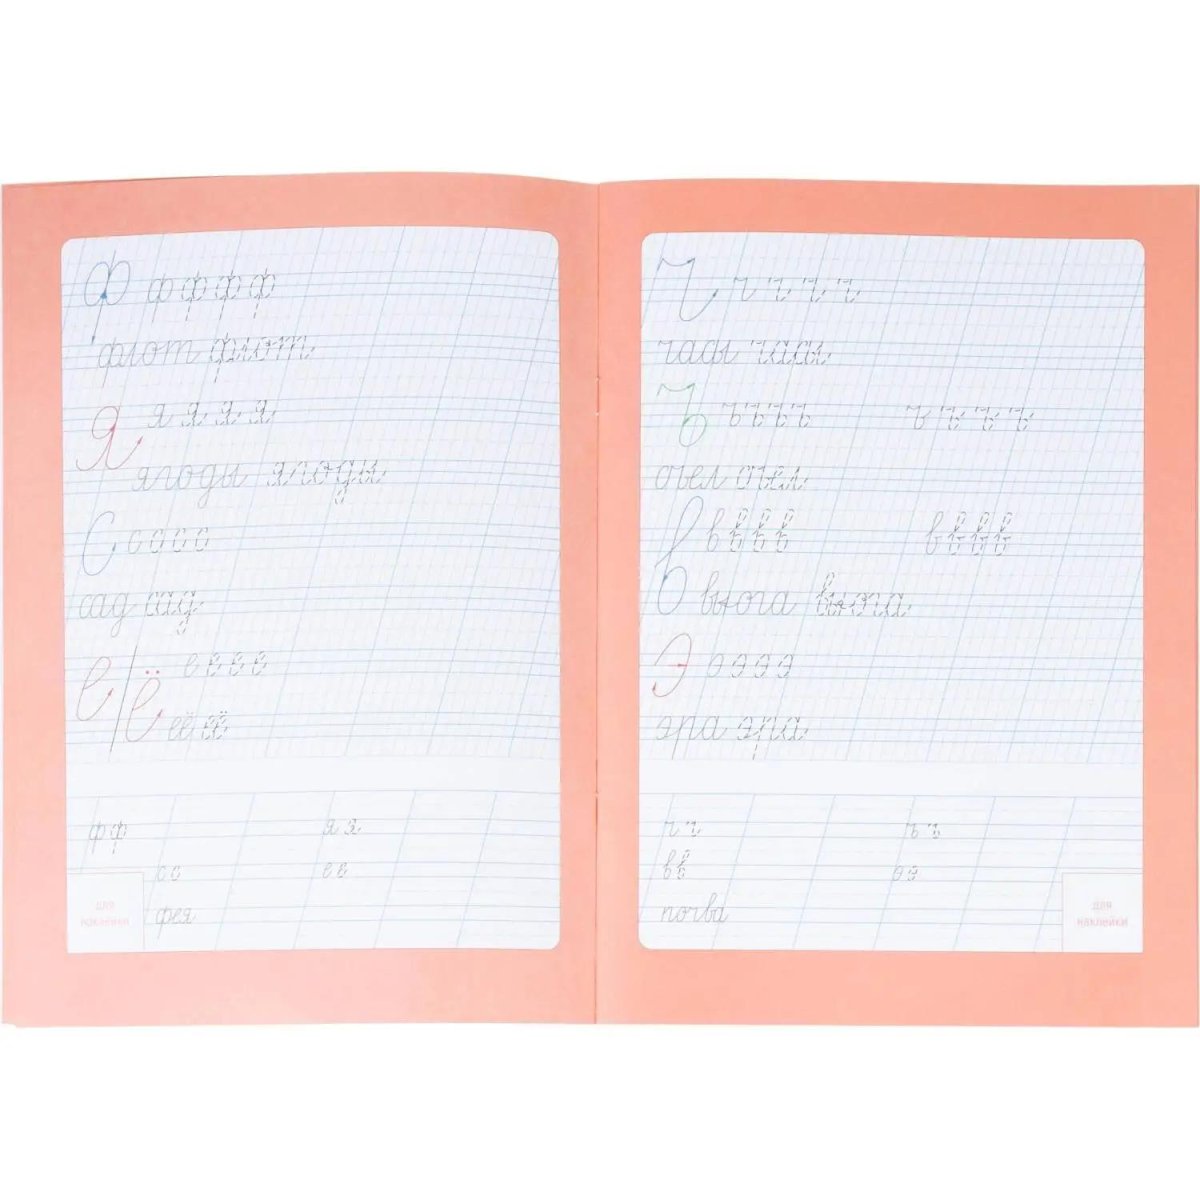 ф ф ф ф ф
флот флот
я я я я я
ягоды ягоды
с с с с с
сад сад
е ё е е е е
её её
ф ф я я
с с е е
фея
для
наклейки
ч ч ч ч ч
часы часы
ъ ъ ъ ъ ъ ъ ъ ъ ъ
съел съел
в в в в в в в в в
вьюга вьюга
э э э э э
эра эра
ч ч ъ ъ
в в э э
почва
для
наклейки